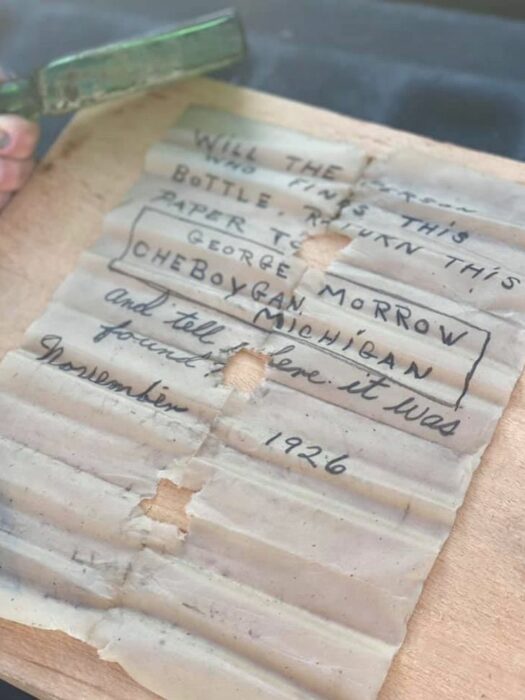 WILL THE PERSON
WHO FINDS THIS
BOTTLE, RETURN THIS
PAPER TO
GEORGE MORROW
CHEBOYGAN
MICHIGAN
and tell where it was
found?
November
1926